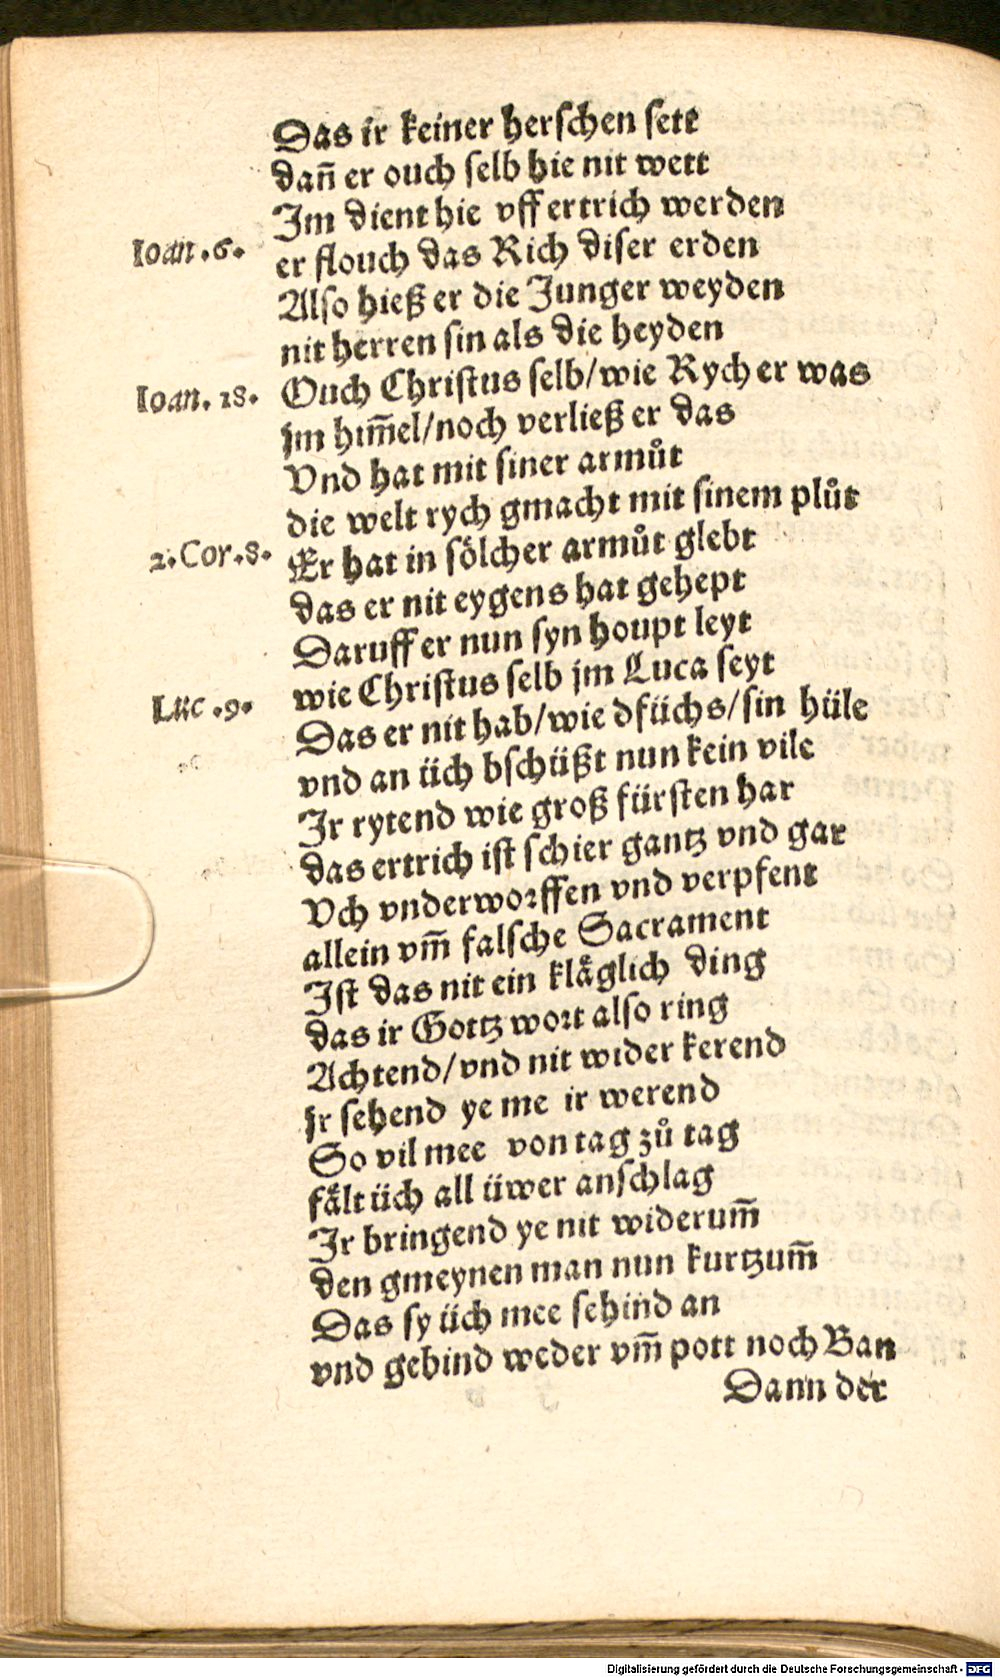 Das ir keiner herschen sett
dañ er ouch selb hie nit wett
Im dient hie vff ertrich werden
Ioan .6.
er flouch das Rich diser erden
Also hieß er die Junger weyden
nit herren sin als die heyden
Ioan. 18.
Ouch Christus selb/wie Rych er was
jm him̃el/noch verließ er das
Vnd hat mit siner armůt
die welt rych gmacht mit sinem plůt
2. Cor .8.
Er hat in soͤlcher armůt glebt
das er nit eygens hat gehept
Daruff er nun syn houpt leyt
wie Christus selb jm Luca seyt
Luc .9.
Das er nit hab/wie dfüchs/sin hüle
vnd an üch bschüßt nun kein vile
Ir rytend wie groß fürsten har
das ertrich ist schier gantz vnd gar
Vch vnderworffen vnd verpfent
allein vm̃ falsche Sacrament
Ist das nit ein klaͤglich ding
das ir Gottz wort also ring
Achtend/vnd nit wider kerend
jr sehend ye me ir werend
So vil mee von tag zů tag
faͤlt üch all üwer anschlag
Ir bringend ye nit widerum̃
den gmeynen man nun kurtzum̃
Das sy üch mee sehind an
vnd gebind weder vm̃ pott noch Ban
Dann der
Digitalisierung gefördert durch die Deutsche Forschungsgemeinschaft - DFG